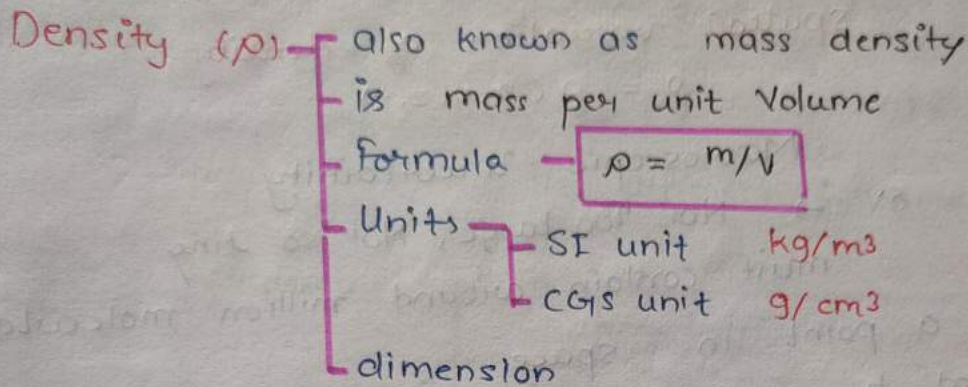 Density (ρ) also known as mass density
is mass per unit Volume
formula ρ = m/v
Units SI unit kg/m3
CGS unit g/cm3
dimension